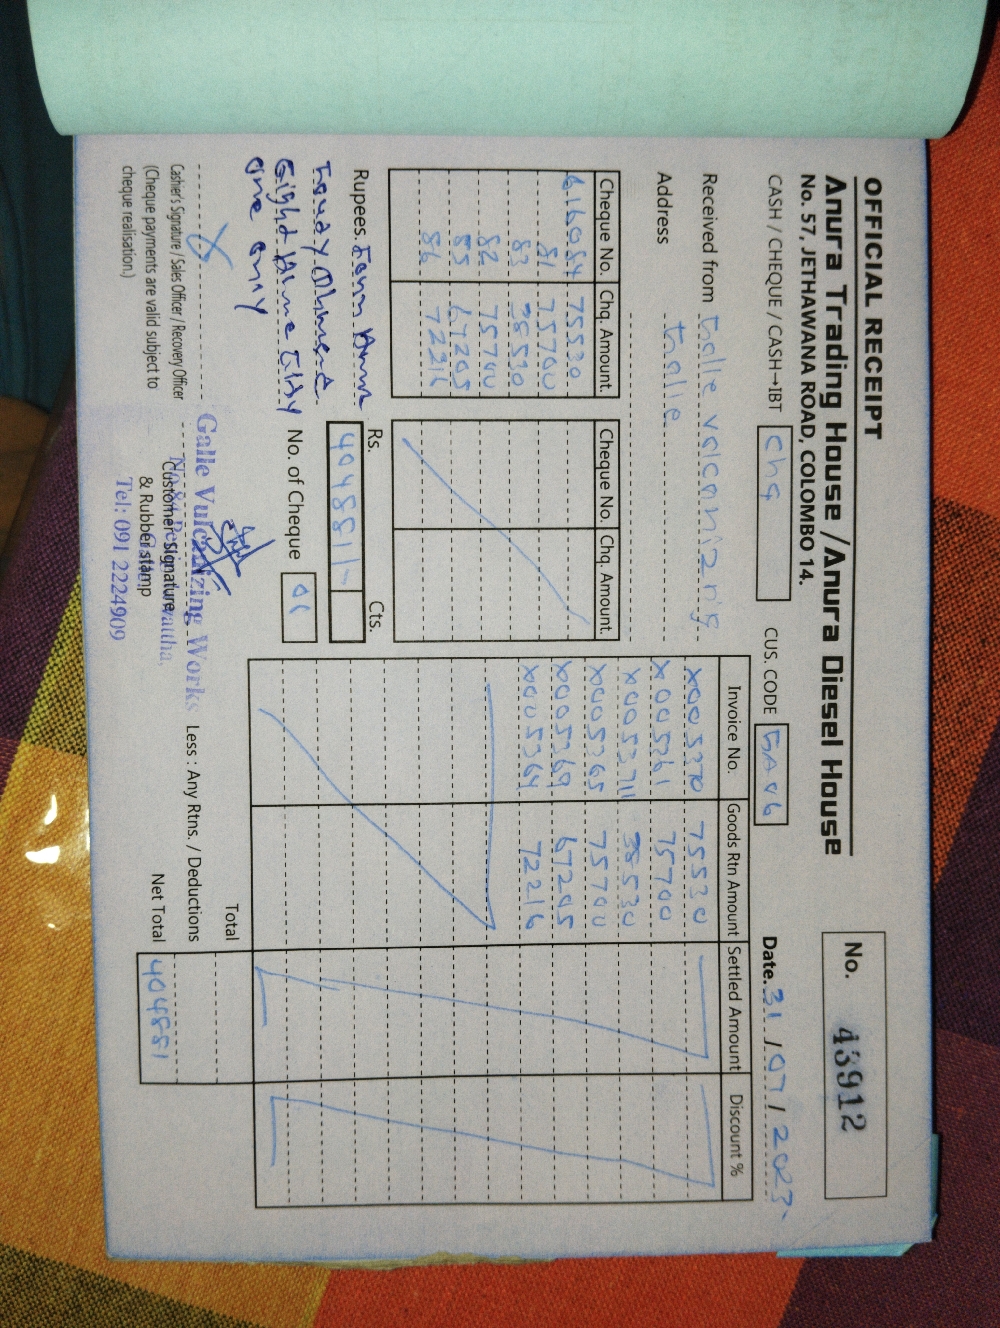 OFFICIAL RECEIPT
Anura Trading House / Anura Diesel House
No. 57, JETHAWANA ROAD, COLOMBO 14.
No. 43912
CASH / CHEQUE / CASH→IBT chq CUS. CODE GA06 Date. 31 / 07 / 2023
Received from Galle volcanizng
Address Galle
Cheque No. Chq. Amount
616084 75530
81 75700
83 38530
82 75700
85 67205
86 72216
Cheque No. Chq. Amount
Invoice No. Goods Rtn Amount Settled Amount Discount %
X005370 75530
X005361 75700
X005371 38530
X005365 75700
X005369 67205
X005364 72216
Rs. Cts.
404881/-
Rupees.
Eight
one only
No. of Cheque 06
Total
Less : Any Rtns. / Deductions
Net Total 404881
Cashier's Signature / Sales Officer / Recovery Officer
(Cheque payments are valid subject to
cheque realisation.)
Customer Signature
& Rubber stamp
Galle Vulcanizing Works
Tel: 091 2224909